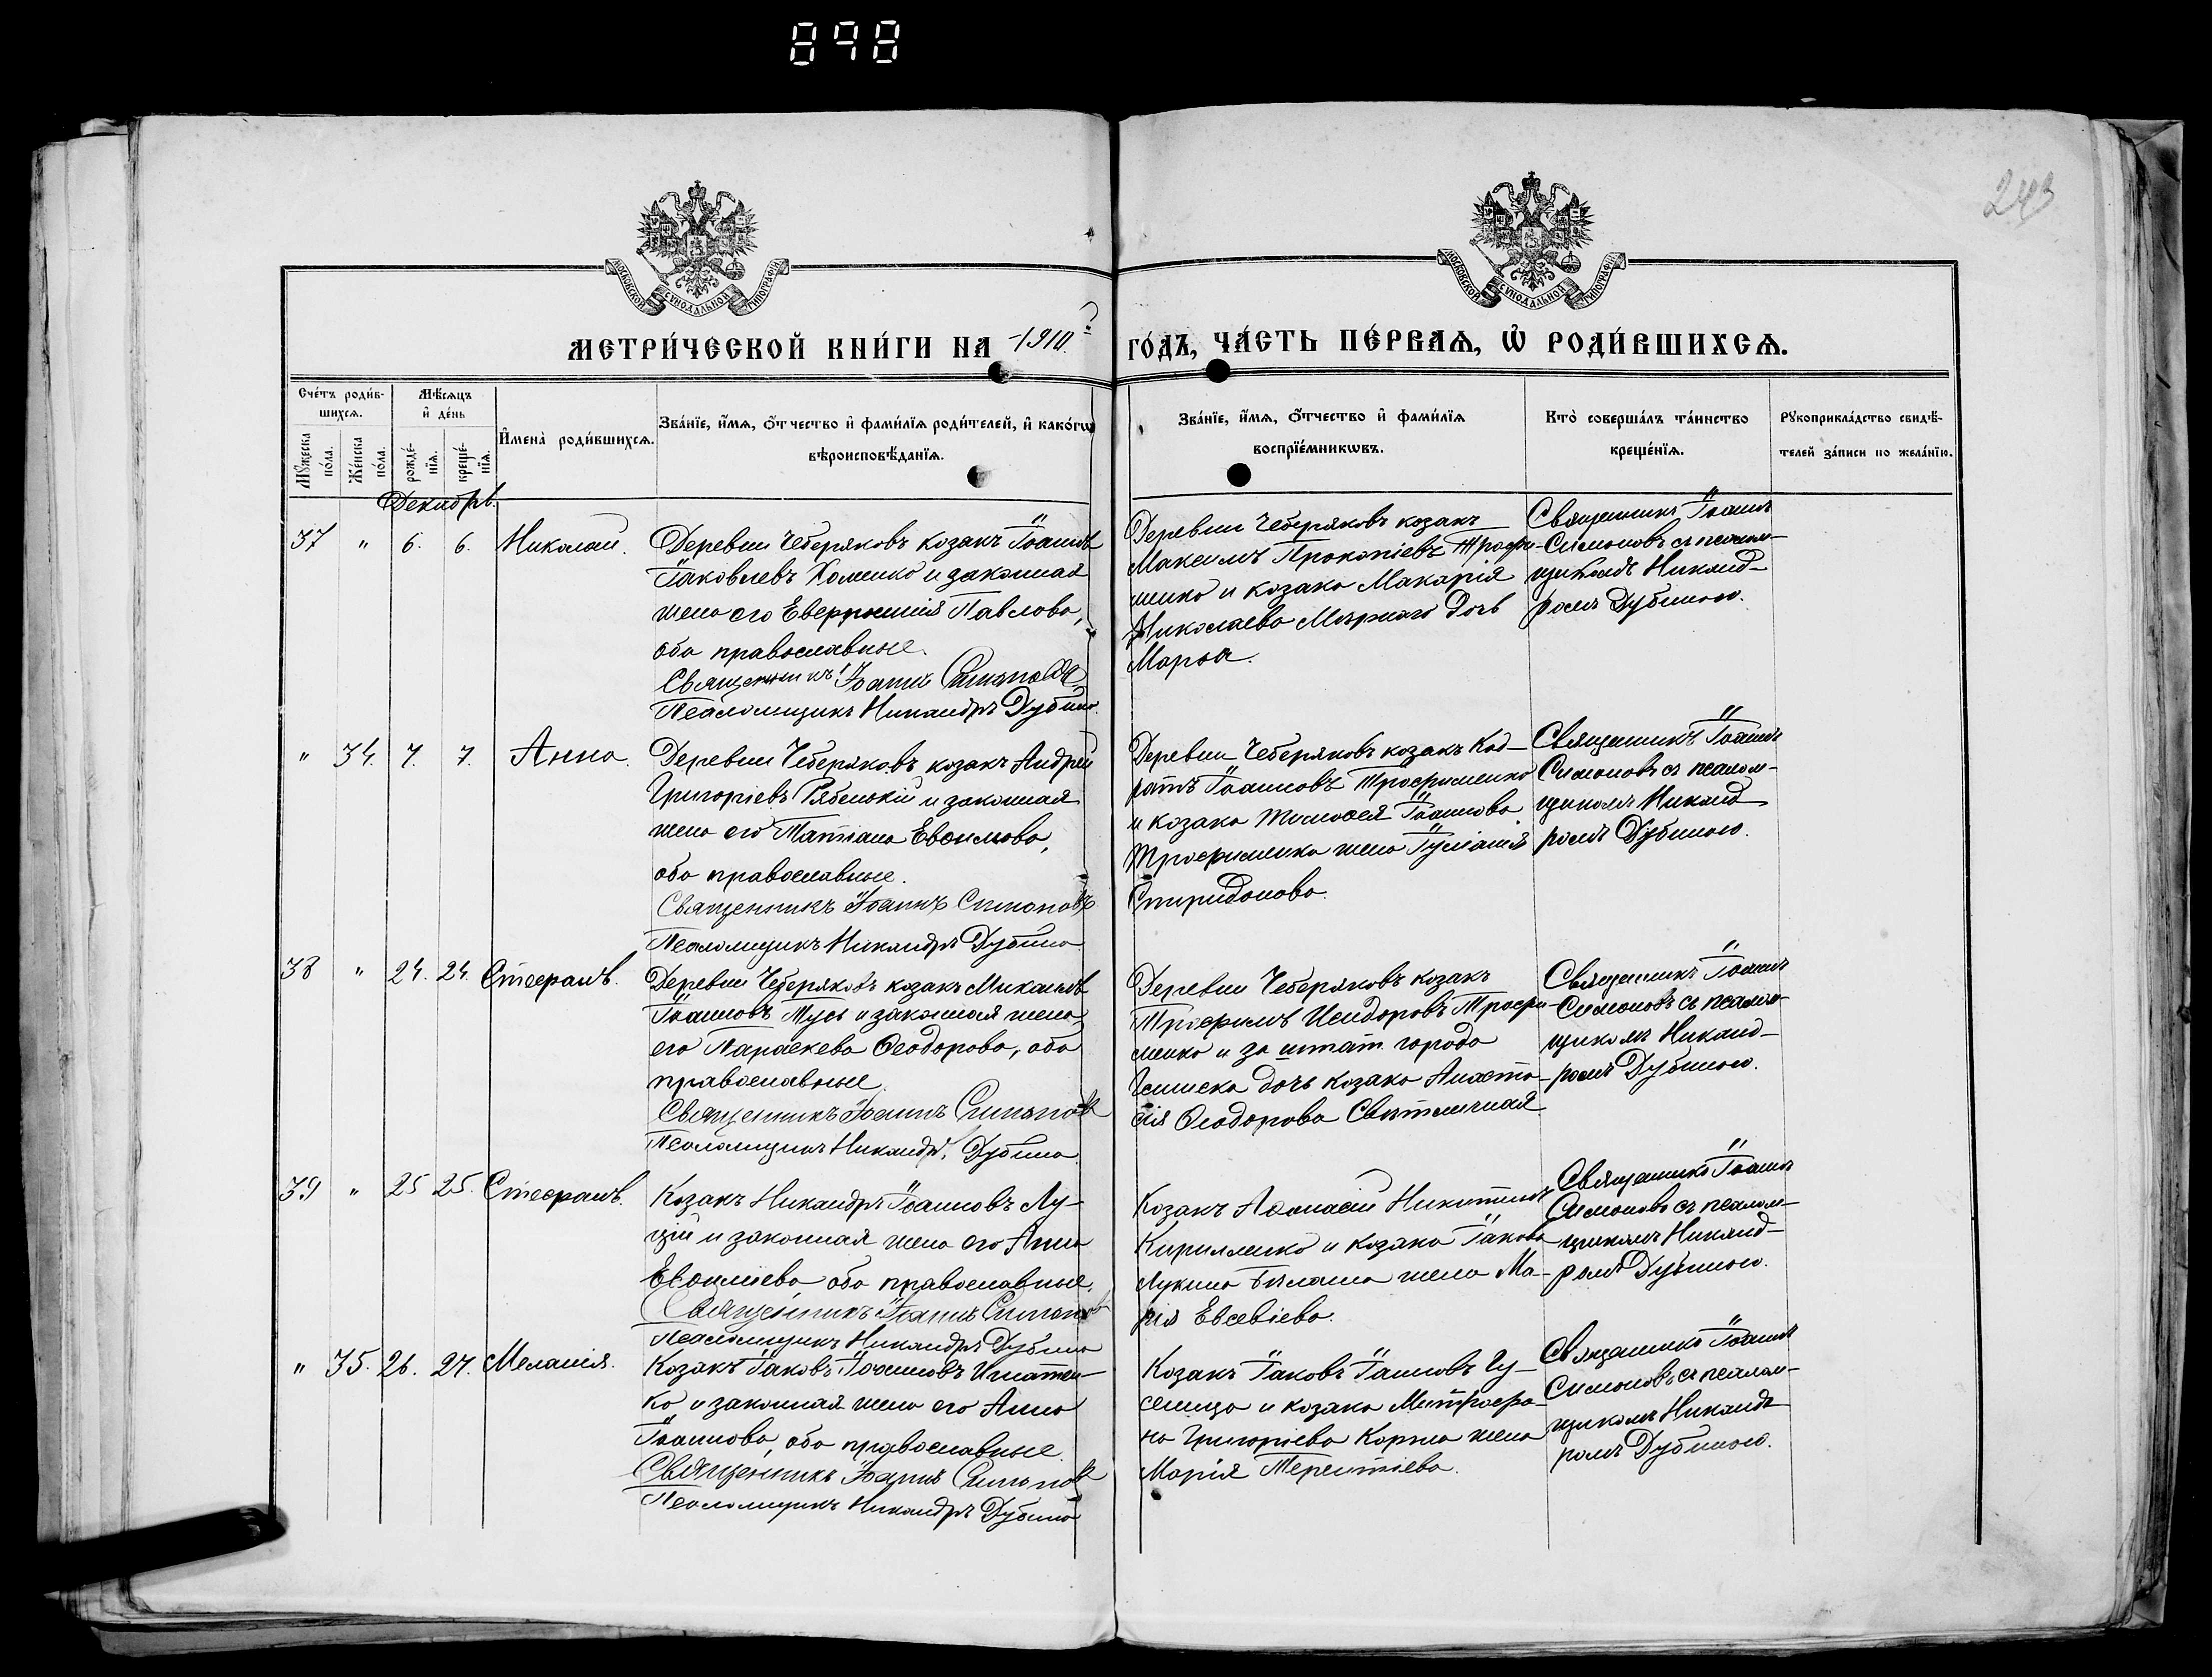 898
243
МОСКОВСКОЙ СѴНОДАЛЬНОЙ ТИПОГРАФІИ
МОСКОВСКОЙ СѴНОДАЛЬНОЙ ТИПОГРАФІИ
МЕТРИ́ЧЕСКОЙ КНИ́ГИ НА 1910.
ГО́ДЪ, ЧА́СТЬ ПЕ́РВАѦ, Ѡ҆ РОДИ́ВШИХСѦ.
Сче́тъ роди́в-
шихсѧ.
Мѣ́сѧцъ
и҆ де́нь
Мꙋ́жеска по́ла.
Же́нска по́ла.
рожде́-нїѧ.
креще́-нїѧ.
И҆мена̀ роди́вшихсѧ.
Зва́нїе, и҆́мѧ, ѻ҆́тчество и҆ фами́лїѧ роди́телей, и҆ како́гѡ
вѣроисповѣ́данїѧ.
Зва́нїе, и҆́мѧ, ѻ҆́тчество и҆ фами́лїѧ
воспрїе́мникѡвъ.
Кто̀ соверша́лъ та́инство
креще́нїѧ.
Рꙋкоприкла́дство свидѣ́-
телей за́писи по жела́нїю.
Декабрь.
37 " 6. 6. Николай.
Деревни Чеберяковъ козакъ Іоаннъ
Іаковлевъ Хоменко и законная
жена его Евфросинія Павлова,
оба православные.
Священникъ Іоаннъ Симоновъ
Псаломщикъ Никандръ Дубина.
Деревни Чеберяковъ козакъ
Максимъ Прокопіевъ Трофи-
менко и козака Макарія
Николаева Мѣрнаго дочь
Марѳа.
Священникъ Іоаннъ
Симоновъ съ псалом-
щикомъ Никанд-
ромъ Дубиною.
" 34. 7. 7. Анна.
Деревни Чеберяковъ козакъ Андрей
Григоріевъ Рябенькій и законная
жена его Татіана Евѳимова,
оба православные.
Священникъ Іоаннъ Симоновъ
Псаломщикъ Никандръ Дубина
Деревни Чеберяковъ козакъ Код-
ратъ Іоанновъ Трофименко
и козака Тимоѳея Іоаннова
Трофименка жена Іуліанія
Спиридонова.
Священникъ Іоаннъ
Симоновъ съ псалом-
щикомъ Никанд
ромъ Дубиною.
38 " 24. 24. Стефанъ.
Деревни Чеберяковъ козакъ Михаилъ
Іоанновъ Тусь и законная жена
его Параскева Ѳеодорова, оба
православные.
Священникъ Іоаннъ Симоновъ
Псаломщикъ Никандръ Дубина.
Деревни Чеберяковъ козакъ
Трофимъ Исидоровъ Трофи-
менко и за штат. города
Глинска дочь козака Анаста-
сія Ѳеодорова Свѣтличная
Священникъ Іоаннъ
Симоновъ съ псалом-
щикомъ Никанд-
ромъ Дубиною.
39 " 25 25. Стефанъ.
Козакъ Никандръ Іоанновъ Лу-
цій и законная жена его Анна
Евѳиміева, оба православные.
Священникъ Іоаннъ Симоновъ
Псаломщикъ Никандръ Дубина
Козакъ Аѳанасій Никитинъ
Кириленко и козака Іакова
Лукина Билаша жена Ма-
рія Евсевіева.
Священникъ Іоаннъ
Симоновъ съ псалом-
щикомъ Никанд-
ромъ Дубиною.
" 35. 26. 27. Меланія.
Козакъ Іаковъ Іоанновъ Игнатен-
ко и законная жена его Анна
Іоаннова, оба православные.
Священникъ Іоаннъ Симоновъ
Псаломщикъ Никандръ Дубина
Козакъ Іаковъ Іоанновъ Гу-
сеница и козака Митрофа-
на Григоріева Коржа жена
Марія Терентіева.
Священникъ Іоаннъ
Симоновъ съ псалом-
щикомъ Никанд-
ромъ Дубиною.